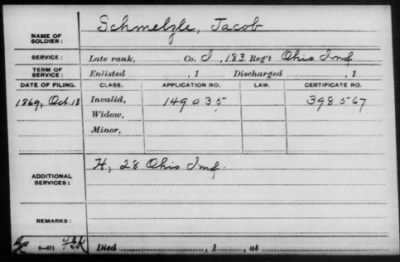 NAME OF SOLDIER: Schmelzle, Jacob
SERVICE: Late rank, Co. I, 183 Reg't Ohio Inf
TERM OF SERVICE: Enlisted , 1 Discharged , 1
DATE OF FILING. CLASS. APPLICATION NO. LAW. CERTIFICATE NO.
1869, Oct. 18 Invalid, 149035 398567
Widow,
Minor,
ADDITIONAL SERVICES: H, 28 Ohio Inf.
REMARKS:
Died , 1 , at